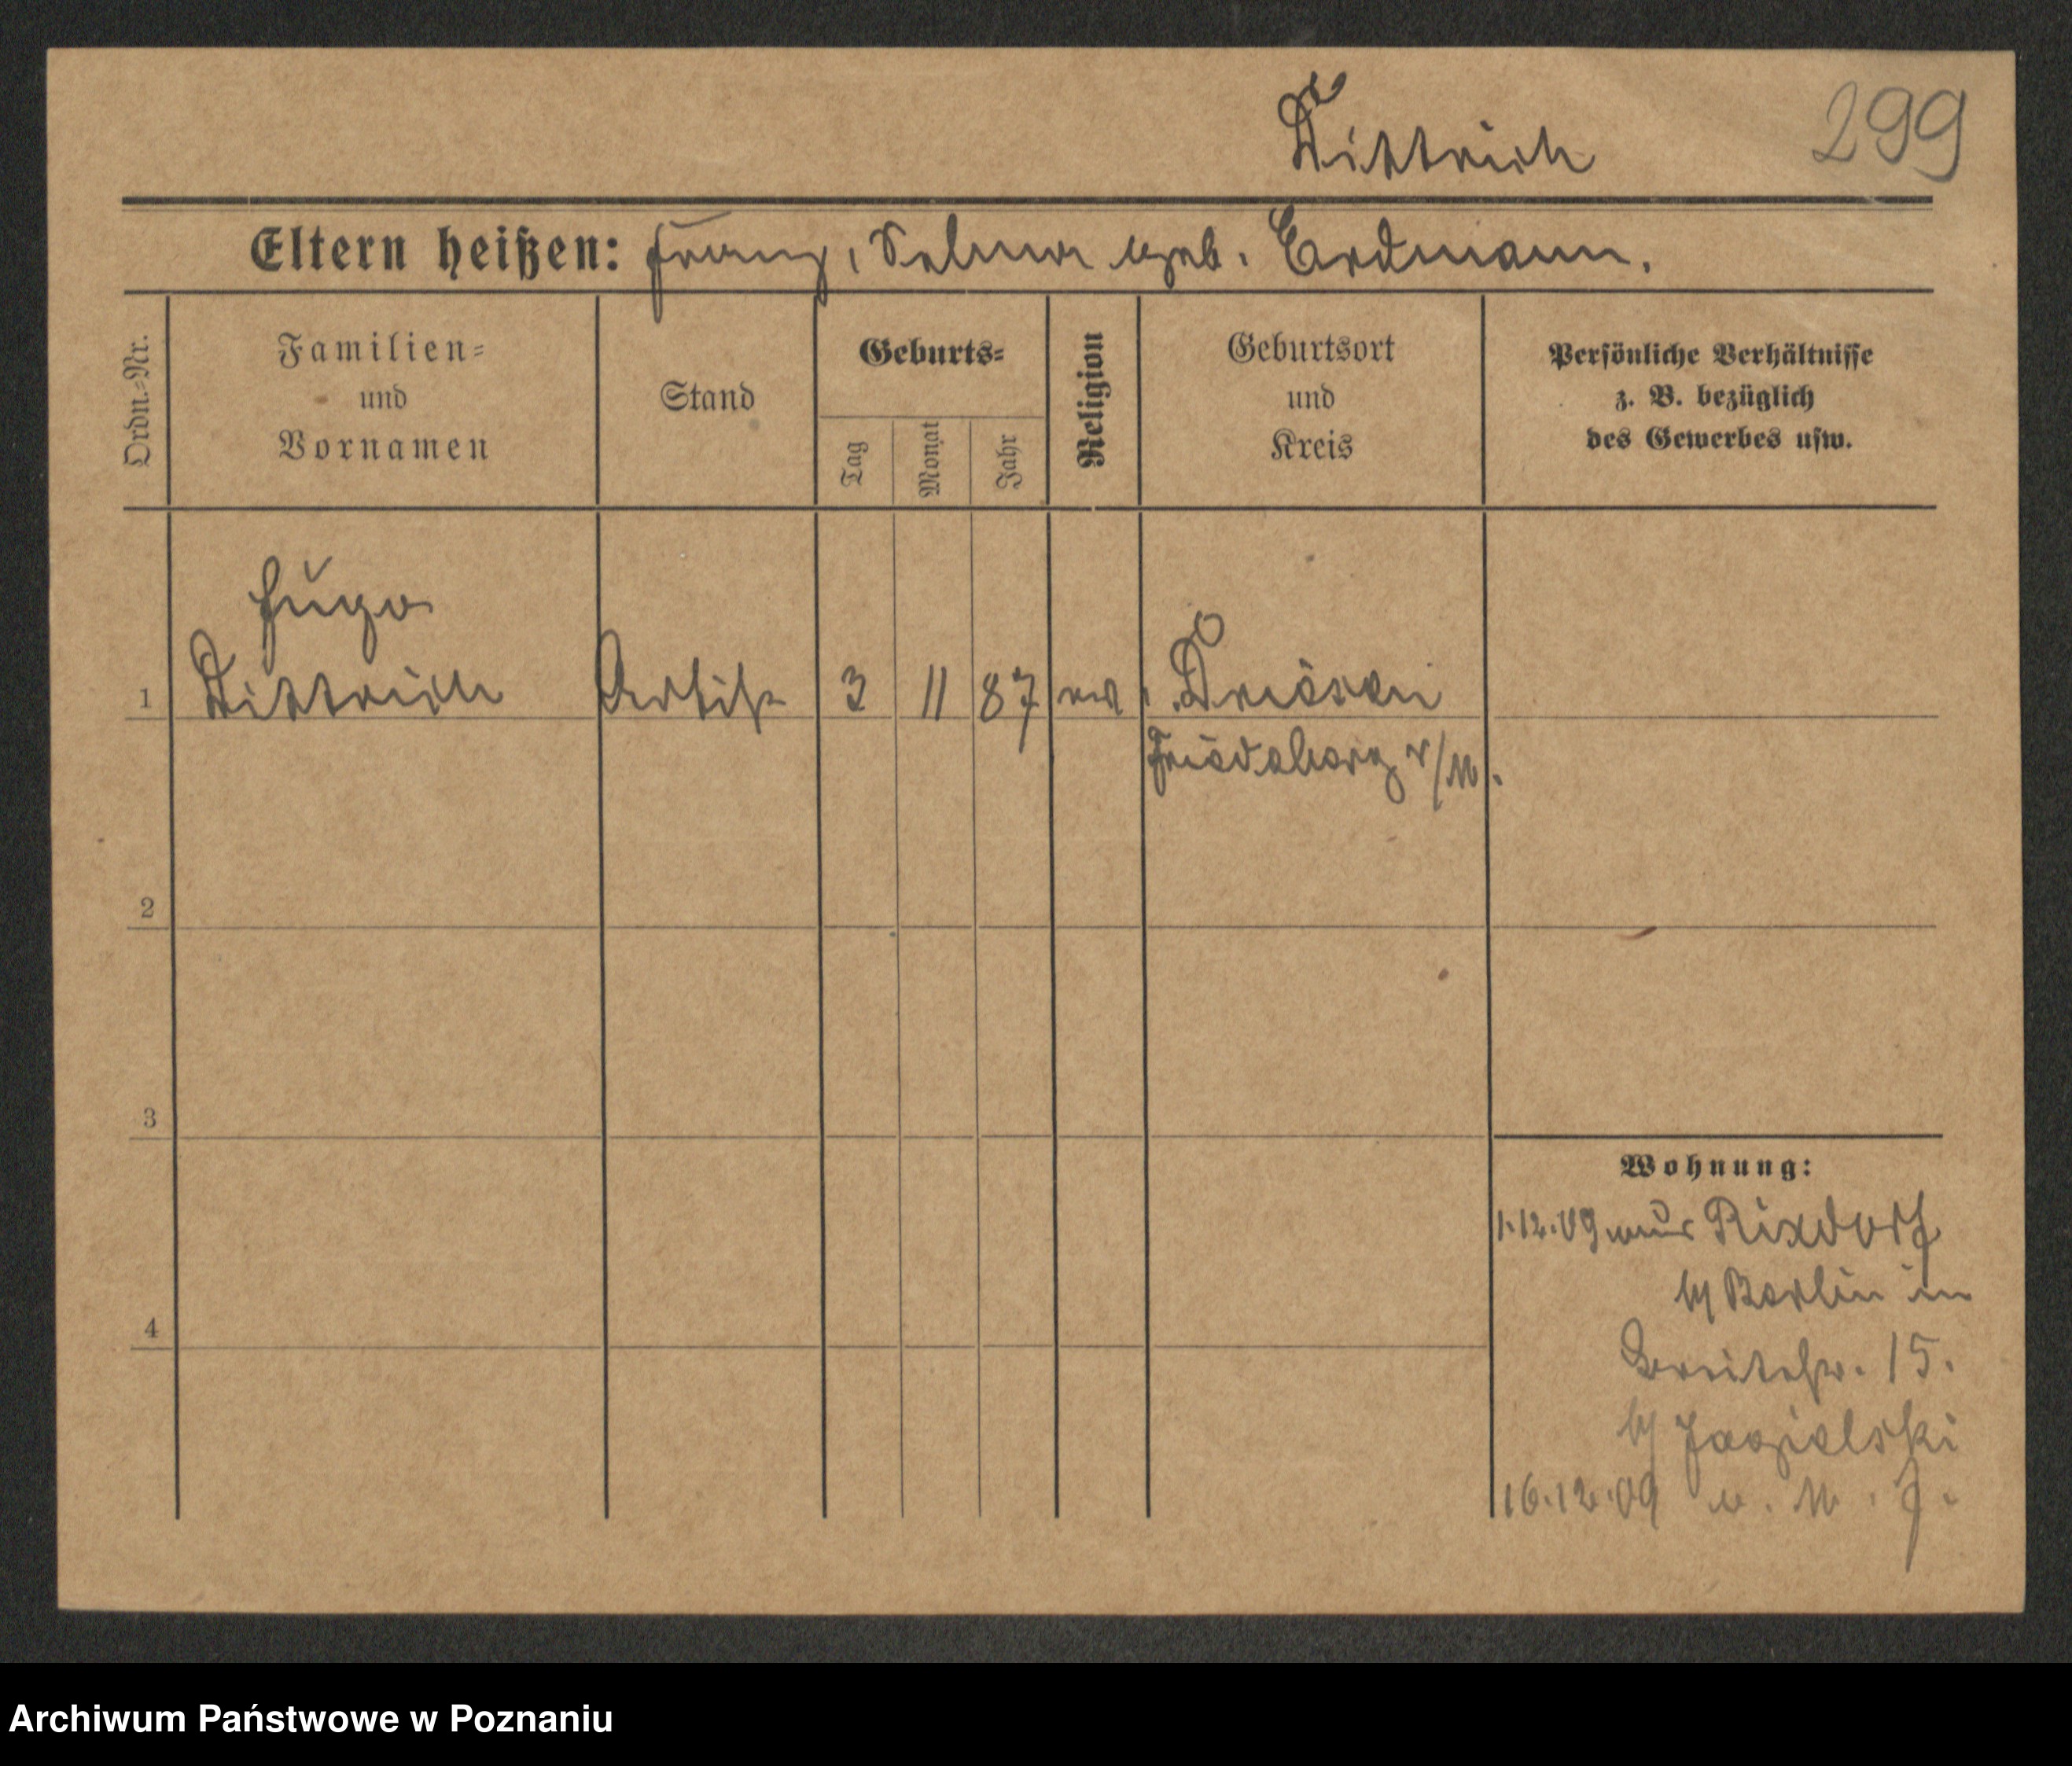 Dittrich
299
Eltern heißen: Franz, Selma geb. Erdmann.
Ordn.=Nr.
Familien=
und
Vornamen
Stand
Geburts=
Tag
Monat
Jahr
Religion
Geburtsort
und
Kreis
Persönliche Verhältnisse
z. B. bezüglich
des Gewerbes usw.
Hugo
1 Dittrich Artist 3 11 87 ev. Driesen
Friedeberg N/M.
2
3
4
Wohnung:
1.12.09 aus Rixdorf
b/ Berlin in
Breitestr. 15.
b/ Jagielski
16.12.09
Archiwum Państwowe w Poznaniu